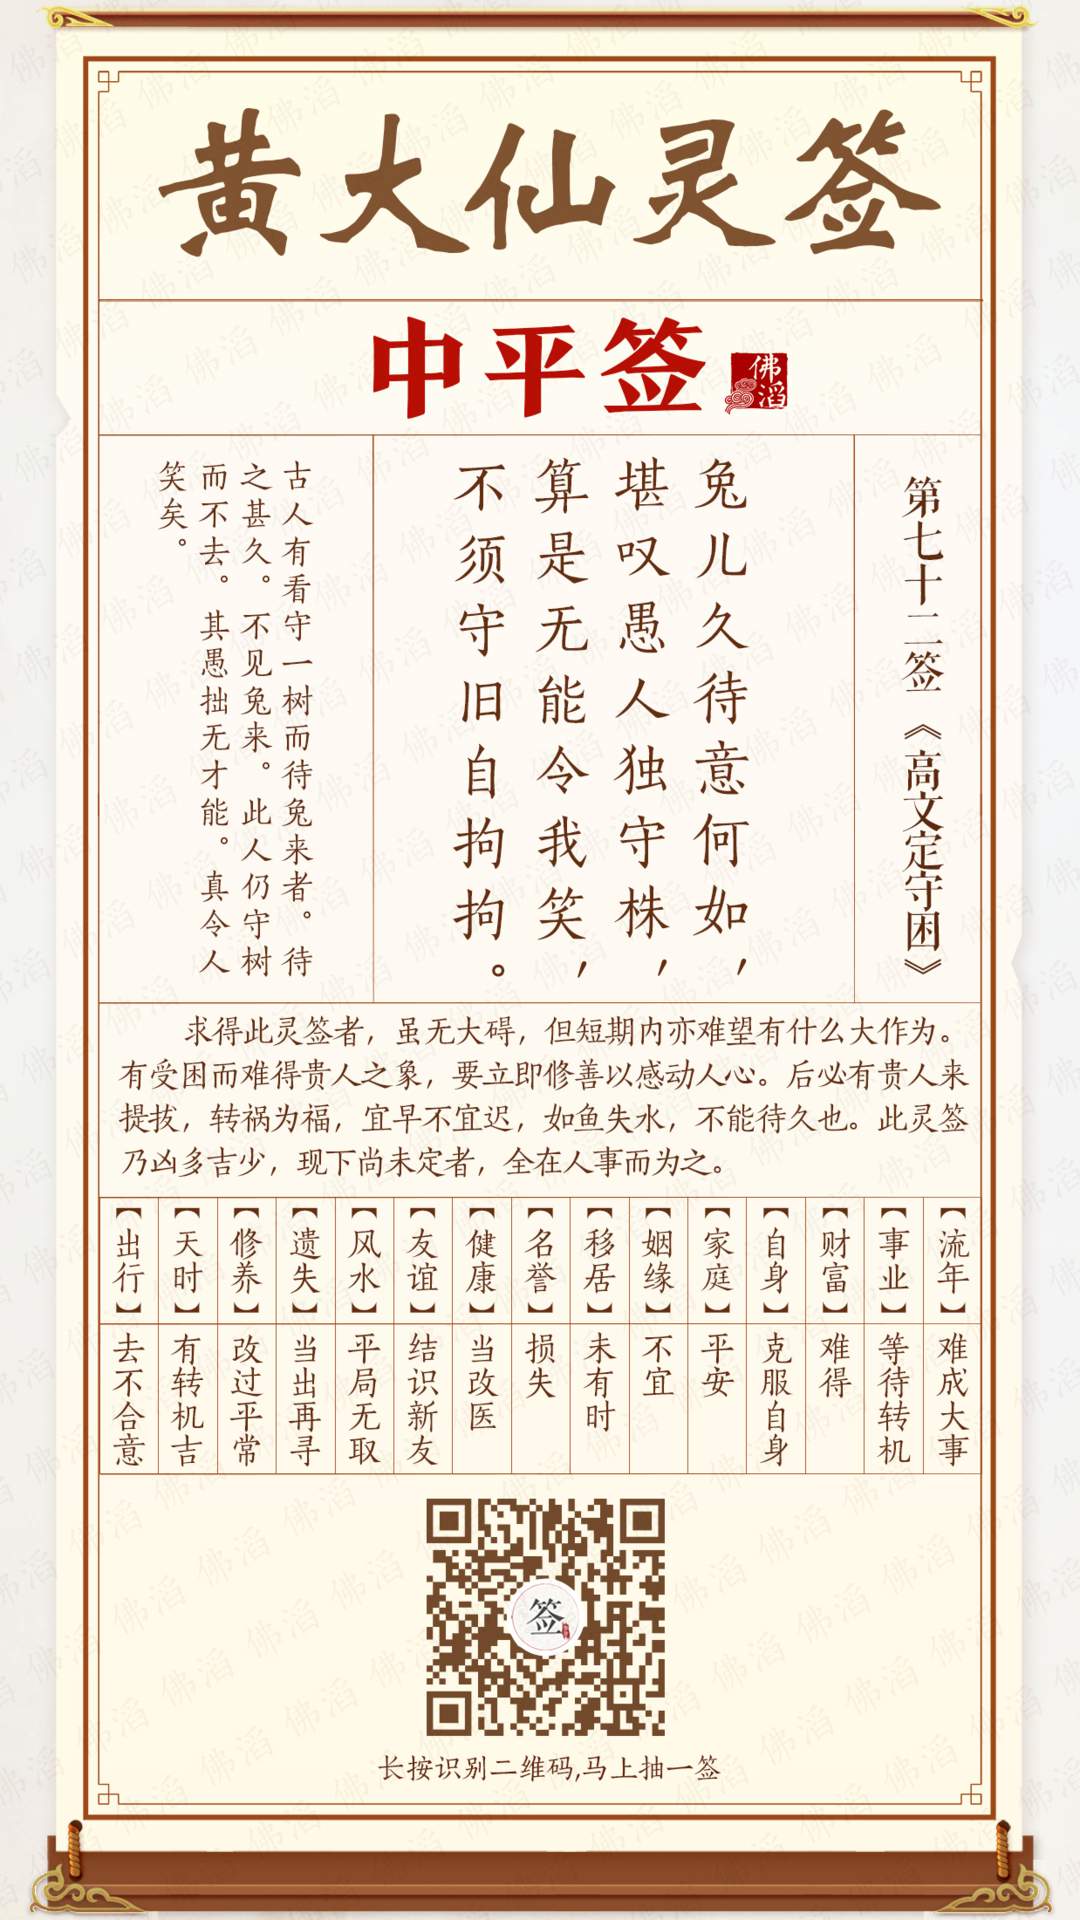 黄大仙灵签
中平签
佛滔
第七十二签《高文定守困》
兔儿久待意何如，
堪叹愚人独守株，
算是无能令我笑，
不须守旧自拘拘。
古人有看守一树而待兔来者。待
之甚久。不见兔来。此人仍守树
而不去。其愚拙无才能。真令人
笑矣。
求得此灵签者，虽无大碍，但短期内亦难望有什么大作为。
有受困而难得贵人之象，要立即修善以感动人心。后必有贵人来
提拔，转祸为福，宜早不宜迟，如鱼失水，不能待久也。此灵签
乃凶多吉少，现下尚未定者，全在人事而为之。
【流年】难成大事
【事业】等待转机
【财富】难得
【自身】克服自身
【家庭】平安
【姻缘】不宜
【移居】未有时
【名誉】损失
【健康】当改医
【友谊】结识新友
【风水】平局无取
【遗失】当出再寻
【修养】改过平常
【天时】有转机吉
【出行】去不合意
签
长按识别二维码,马上抽一签